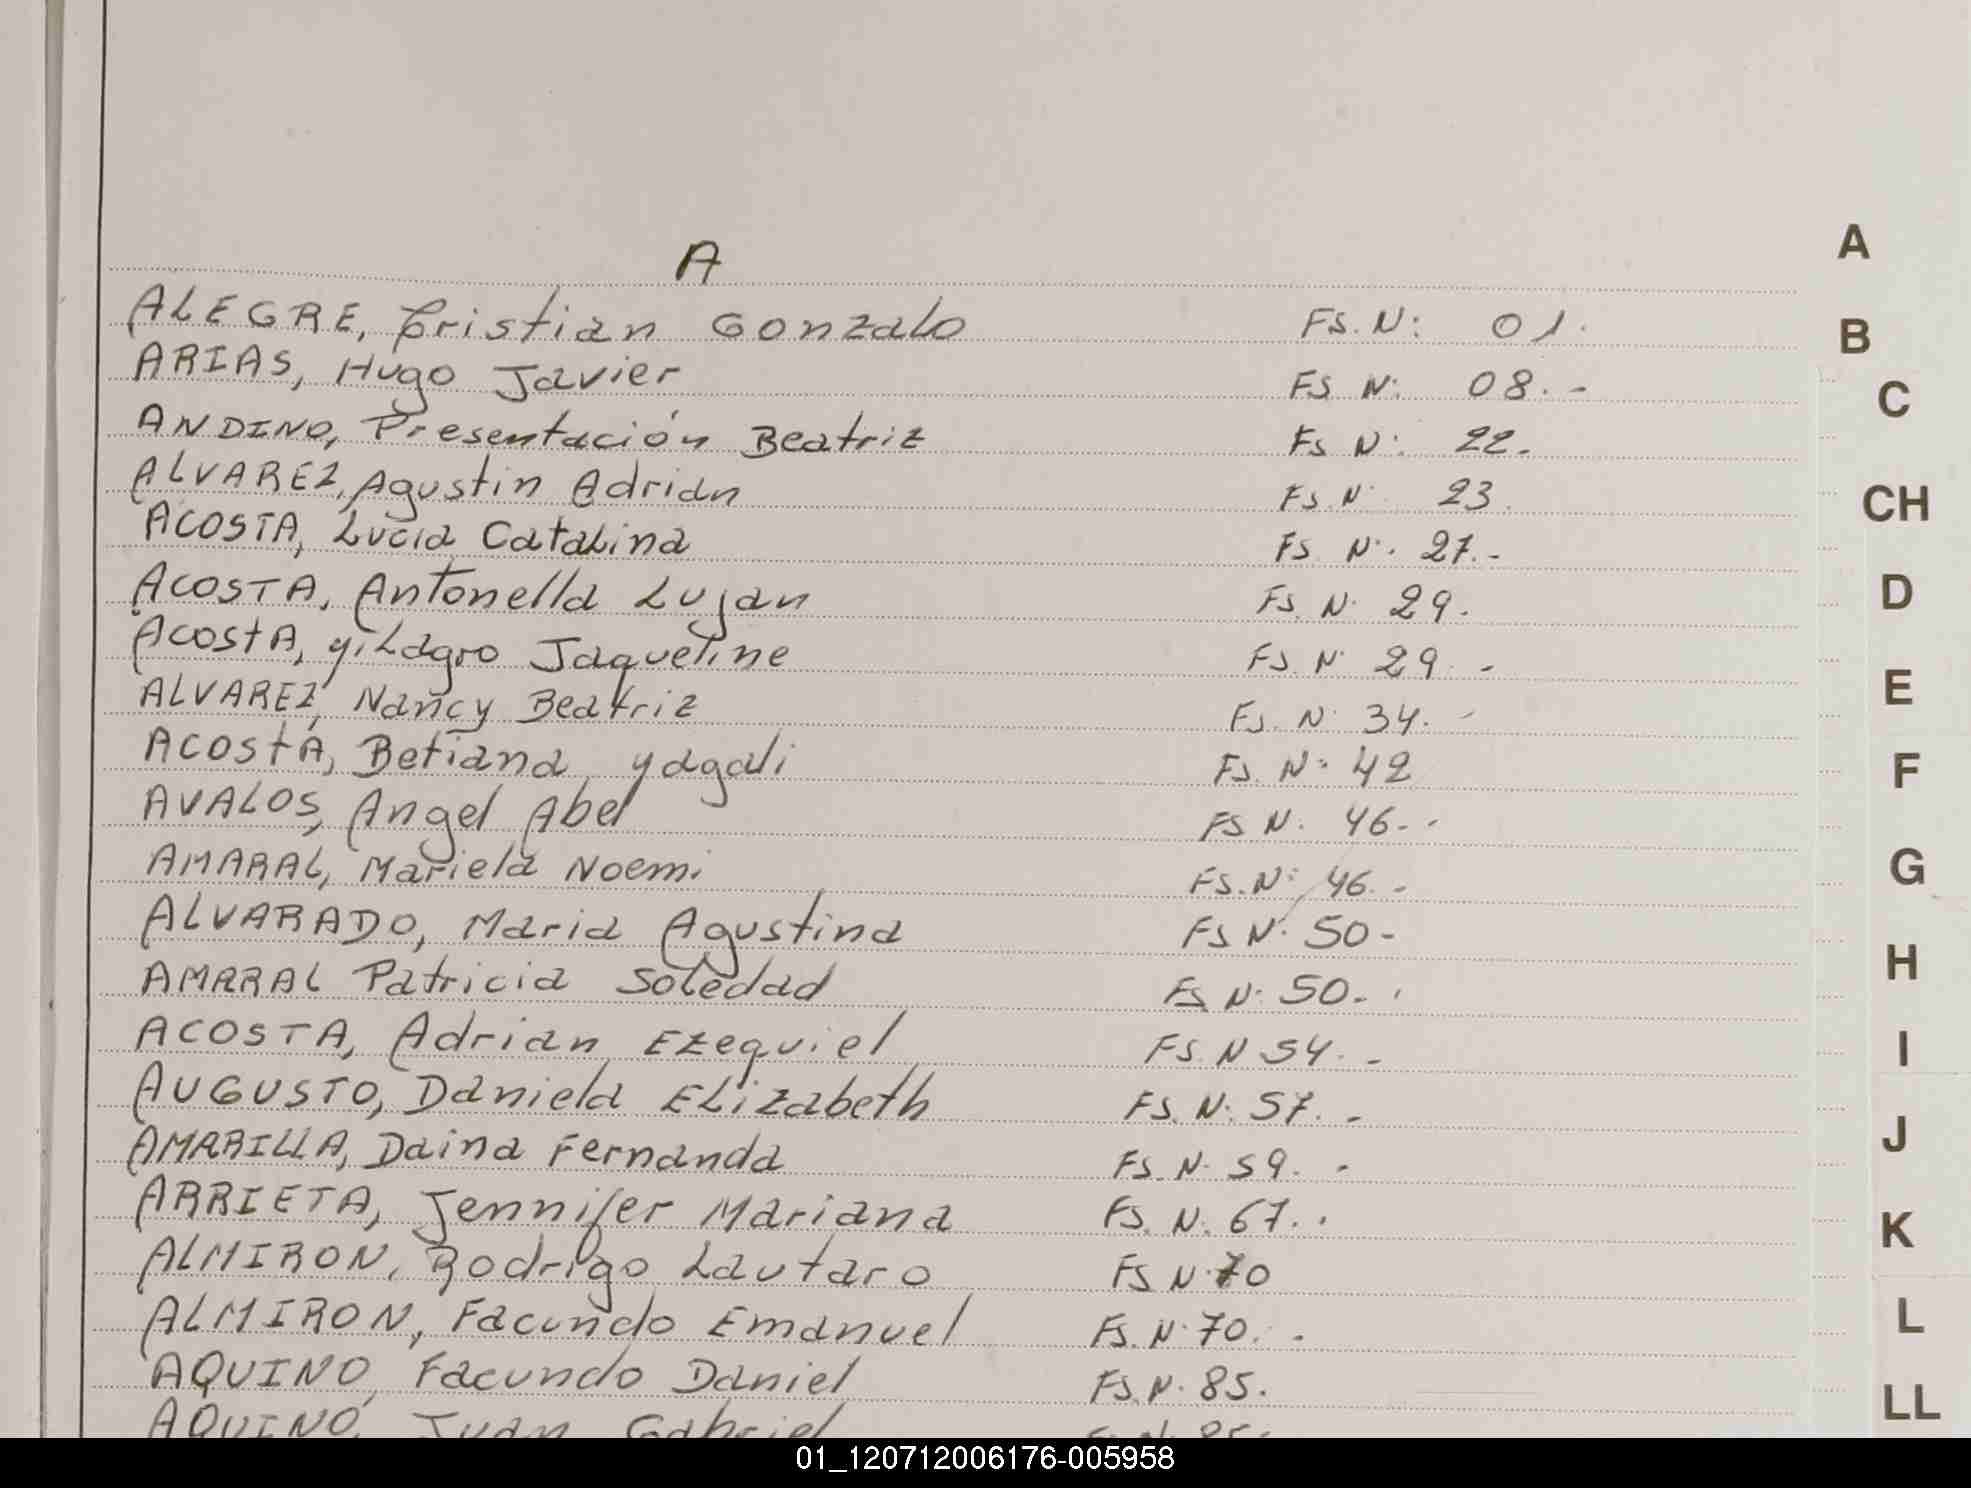 A
ALEGRE, Cristian Gonzalo FS. N: 01.
ARIAS, Hugo Javier FS N: 08. -
ANDINO, Presentación Beatriz Fs N: 22.
ALVAREZ, Agustin Adrian Fs. N: 23
ACOSTA, Lucia Catalina Fs N: 27. -
ACOSTA, Antonella Lujan Fs. N: 29.
ACOSTA, yiLagro Jaqueline FS. N: 29. -
ALVAREZ, Nancy Beatriz Fs. N: 34. -
ACOSTA, Betiana yagali Fs. N: 42
AVALOS, Angel Abel FS N. 46. -
AMARAL, Mariela Noemi FS. N: 46. -
ALVARADO, Maria Agustina Fs N: 50 -
AMARAL Patricia Soledad Fs N: 50. .
ACOSTA, Adrian Ezequiel FS. N 54. -
AUGUSTO, Daniela ELizabeth FS. N: 57. -
AMARILLA, Daina Fernanda Fs. N. 59. -
ARRIETA, Jennifer Mariana Fs. N. 67. .
ALMIRON, Rodrigo Lautaro FS N. 70
ALMIRON, Facundo Emanuel Fs. N. 70. .
AQUINO, Facundo Daniel Fs. N. 85.
AQUINO, Juan Gabriel 85.
A
B
C
CH
D
E
F
G
H
I
J
K
L
LL
01_120712006176-005958